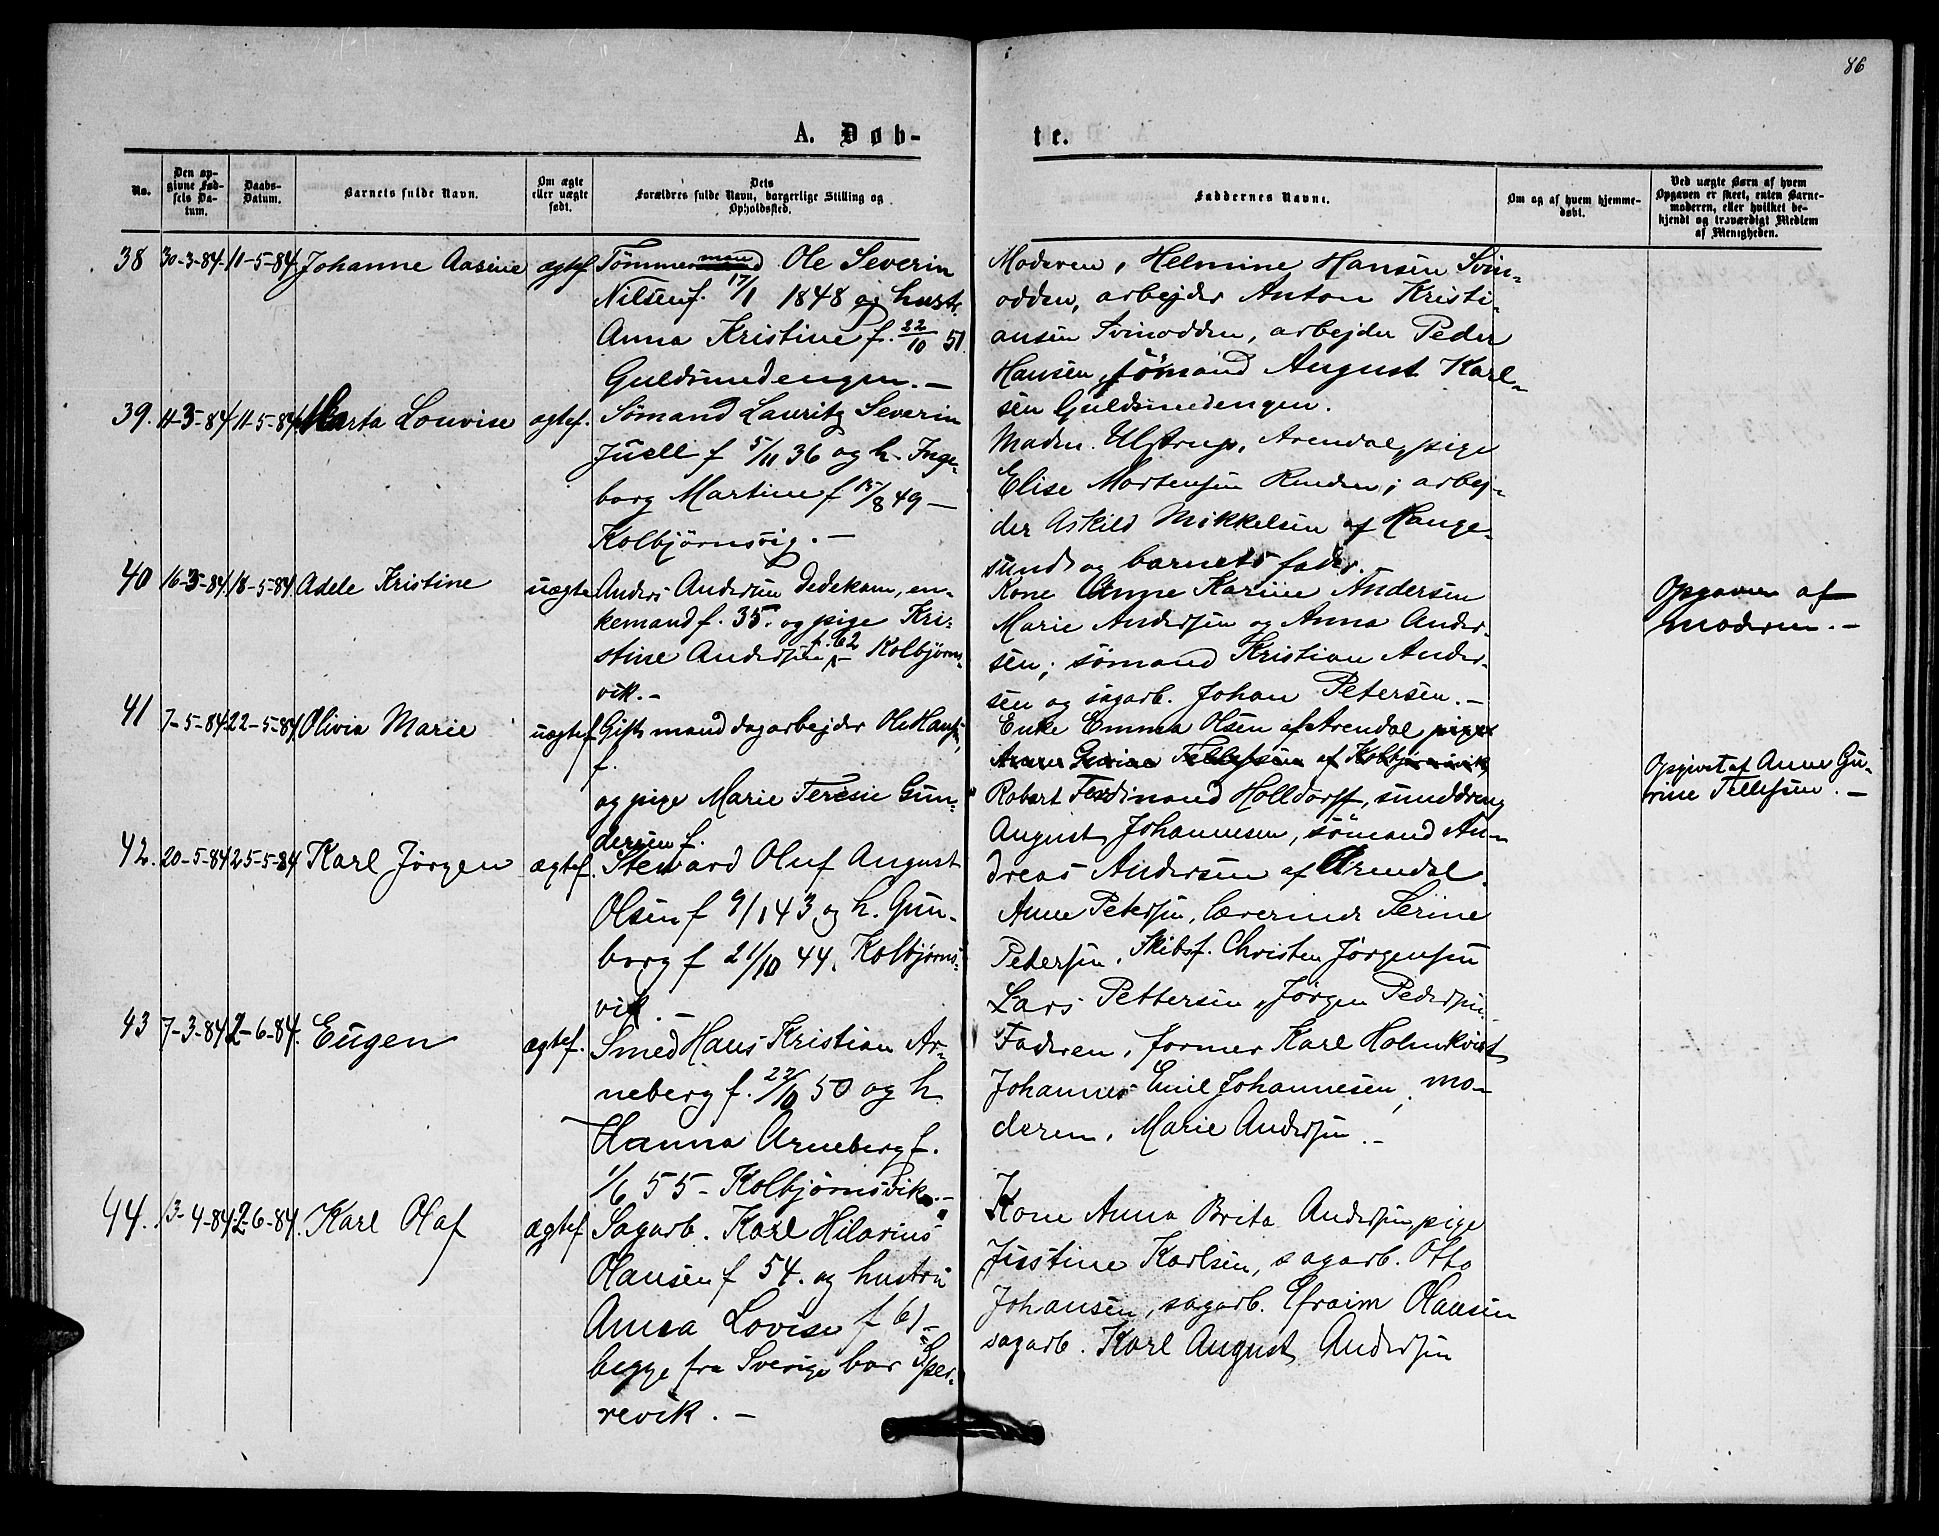 86
A. Døb-
te.
No.
Den op-
givne Fød-
sels Da-
tum.
Daabs-
Datum.
Barnets fulde Navn.
Om ægte
eller uægte
født.
Dets
Forældres fulde Navn, borgerlige Stilling og
Opholdssted.
Faddernes Navne.
Om og af hvem hjemme-
døbt.
Ved uægte Børn af hvem
Opgaven er skeet, enten Barne-
moderen, eller hvilket be-
kjendt og troværdigt Medlem
af Menigheden.
38 30-3-84. 11-5-84. Johanne Aasine ægtef.
Tømmermand Ole Severin
Nilsen f. 17/1 1848 og hustr.
Anna Kristine f. 22/10 51.
Guldsmedengen. —
Moderen, Helmine Hansen Svin-
odden, arbejder Anton Kristi-
ansen Svinodden, arbejder Peder
Hansen, sömand August Karl-
sen Guldsmedengen.
39. 11-3-84 11-5-84 Marta Louvise ægtef.
Sömand Lauritz Severin
Juell f 5/11 36 og h. Inge-
borg Martine f 15/8 49 —
Kolbjörnsvig. —
Madm. Ulstrup, Arendal, pige
Elise Mortensen Rinden; arbej-
der Askild Mikkelsen af Hauge-
sund og barnets fader.
40 16-3-84. 18-5-84. Adele Kristine uægte
Anders Andersen Dedekam, en-
kemand f. 35. og pige Kri-
stine Andersen f. 62 Kolbjörns-
vik. -
Kone Anne Karine Andersen
Marie Andersen og Anna Ander-
sen; sömand Kristian Ander-
sen og sagarb. Johan Petersen. -
Opgaven af
moderen. -
41 7-5-84 22-5-84. Olivia Marie uægtef.
Gift mand dagarbejder Ole Hansen,
f.
og pige Marie Teresie Gun-
dersen f.
Enke Emma Olsen af Arendal pige
Anne Gurine Tellefsen af Kolbjörnsvik,
Robert Ferdinand Holldorff, sunddreng
August Johannesen, sömand An-
dreas Andersen af Arendal.
Opgivet af Anne Gu-
rine Tellefsen. -
42. 20-5-84 25-5-84 Karl Jörgen ægtef.
Steward Oluf August
Olsen f 9/1 43 og h. Gun-
borg f 21/10 44. Kolbjörns-
vik. -
Anne Petersen, lærerinde Serine
Petersen, Skibsf. Christen Jörgensen
Lars Pettersen, Jörgen Pedersen.
43 7-3-84. 2-6-84. Eugen ægtef.
Smed Hans Kristian Ar-
neberg f. 22/10 50 og h.
Hanna Arneberg f.
1/6 55 - Kolbjörnsvik. -
Faderen, former Karl Holmkvist
Johannes Emil Johannesen, mo-
deren, Marie Andersen. -
44. 13-4-84. 2-6-84. Karl Olaf ægtef
Sagarb. Karl Hilarius
Olausen f 54. og hustru
Anna Lovise f 61 -
begge fra Sverige bor Sper-
revik. -
Kone Anna Brita Andersen, pige
Justine Karlsen, sagarb. Otto
Johansen, sagarb. Efraim Olausen
sagarb. Karl August Andersen